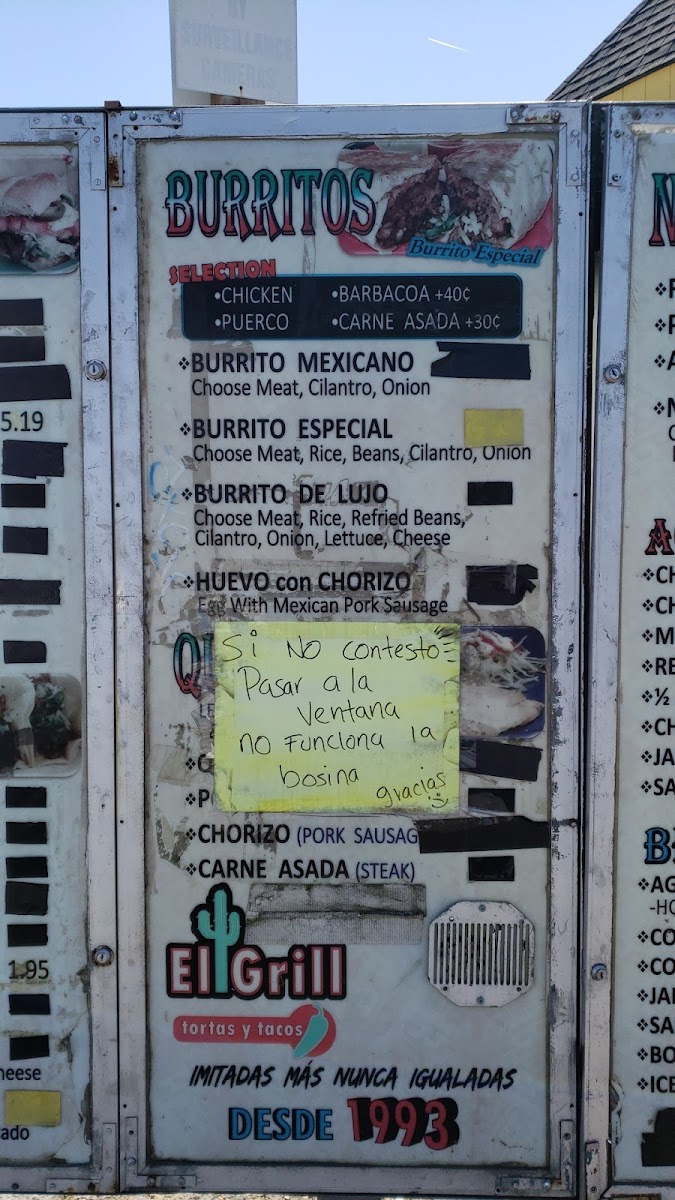 BY
SURVEILLANCE
CAMERAS
BURRITOS
Burrito Especial
SELECTION
•CHICKEN •BARBACOA +40¢
•PUERCO •CARNE ASADA +30¢
❖BURRITO MEXICANO
Choose Meat, Cilantro, Onion
❖BURRITO ESPECIAL
Choose Meat, Rice, Beans, Cilantro, Onion
❖BURRITO DE LUJO
Choose Meat, Rice, Refried Beans,
Cilantro, Onion, Lettuce, Cheese
❖HUEVO con CHORIZO
Egg With Mexican Pork Sausage
Si NO contesto
Pasar a la
ventana
no Funciona la
bosina
gracias
❖CHORIZO (PORK SAUSAG
❖CARNE ASADA (STEAK)
El Grill
tortas y tacos
IMITADAS MÁS NUNCA IGUALADAS
DESDE 1993
5.19
1.95
heese
ado
❖CH
❖CH
❖M
❖RE
❖½
❖CH
❖JA
❖SA
B
❖AG
-HO
❖CO
❖CO
❖JA
❖SA
❖BO
❖ICE